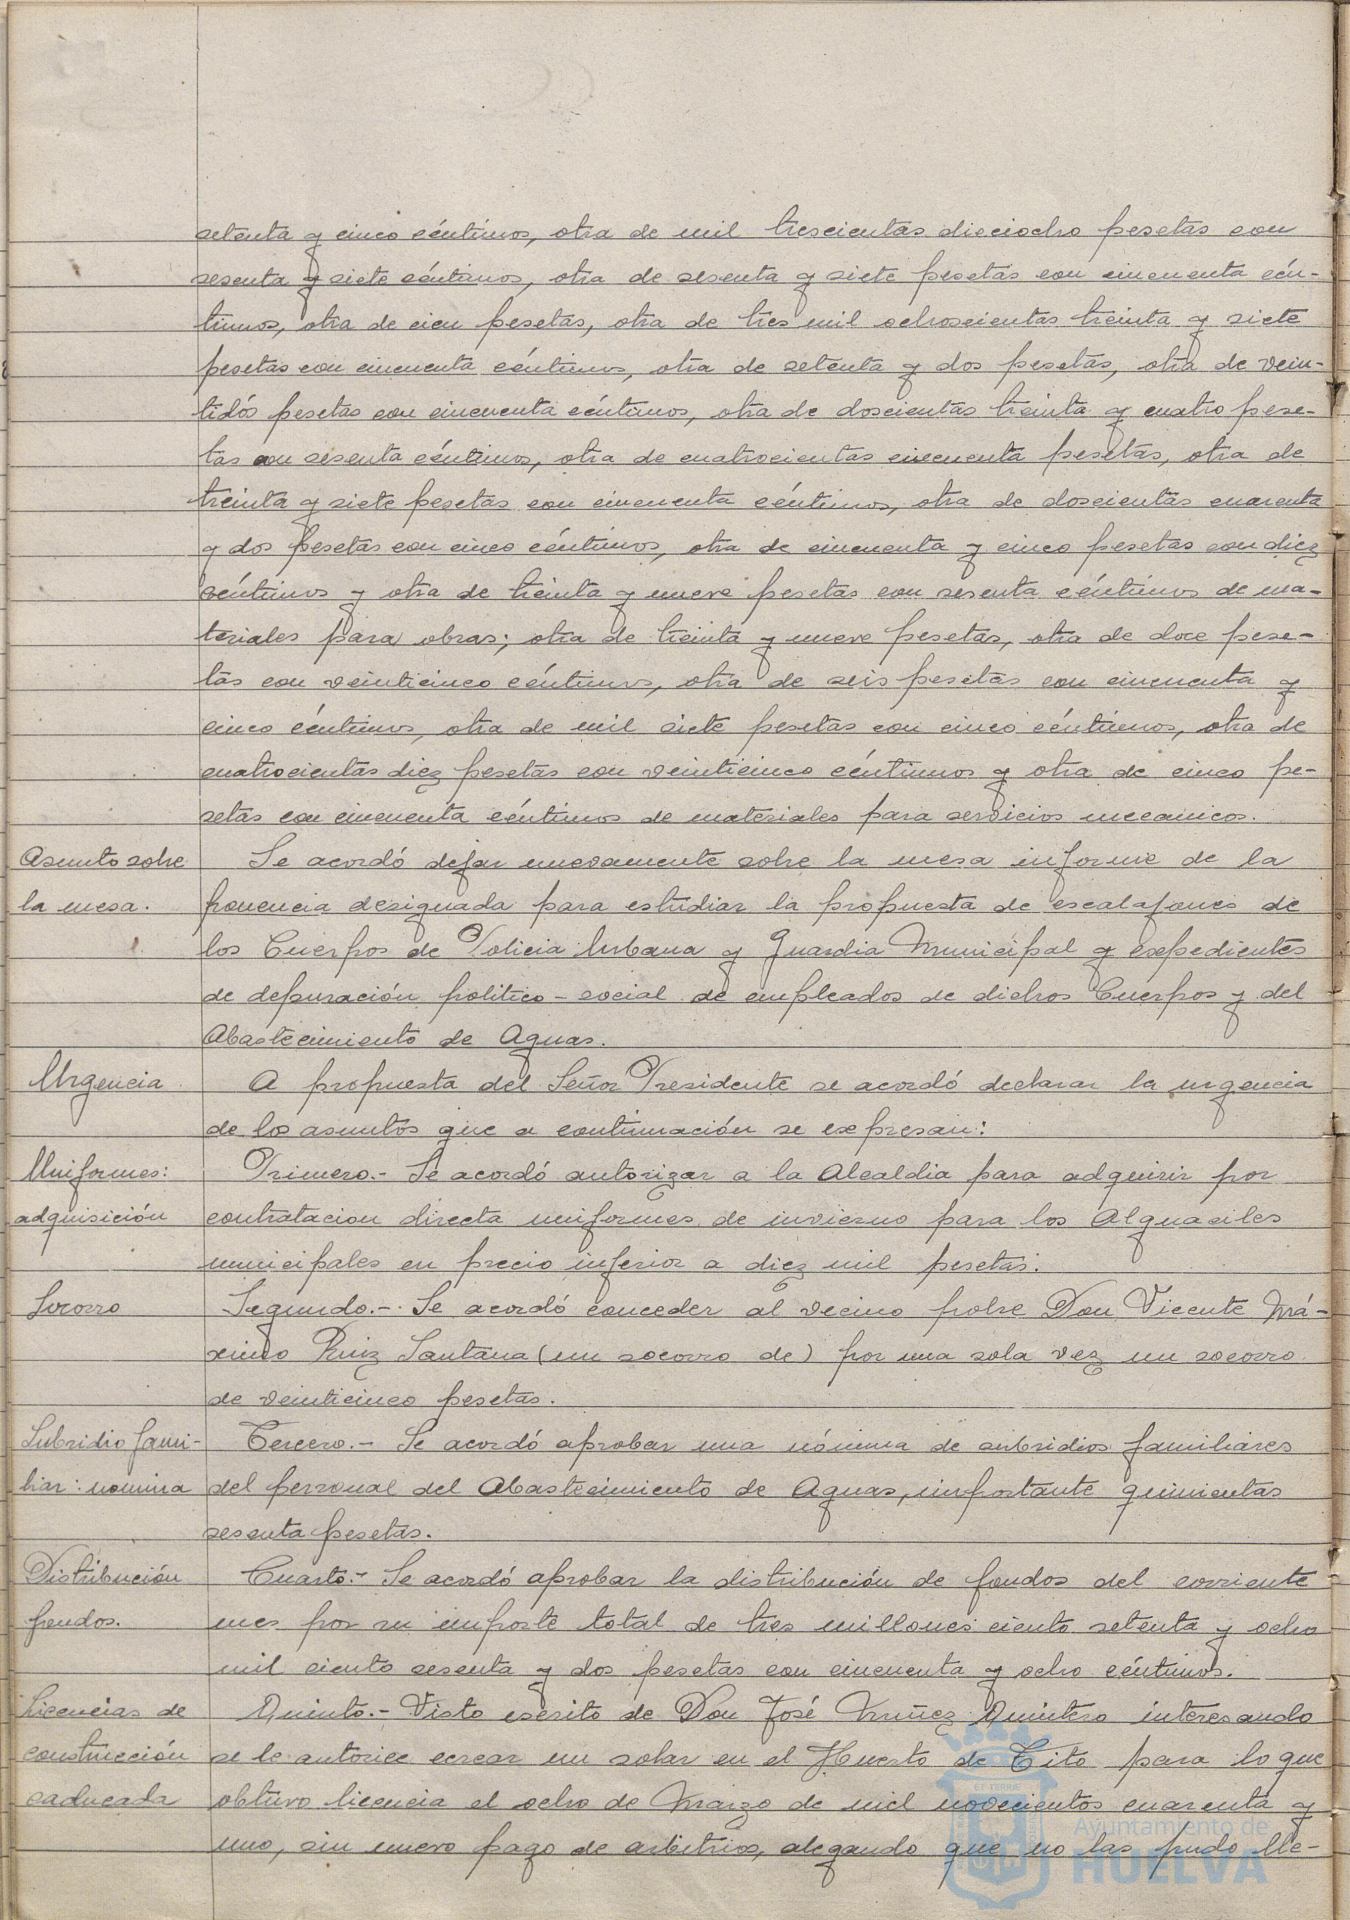 setenta y cinco céntimos, otra de mil trescientas dieciocho pesetas con
sesenta y siete céntimos, otra de sesenta y siete pesetas con cincuenta cén-
timos, otra de cien pesetas, otra de tres mil ochoscientas treinta y siete
pesetas con cincuenta céntimos, otra de setenta y dos pesetas, otra de vein-
tidós pesetas con cincuenta céntimos, otra de doscientas treinta y cuatro pese-
tas con sesenta céntimos, otra de cuatrocientas cincuenta pesetas, otra de
treinta y siete pesetas con cincuenta céntimos, otra de doscientas cuarenta
y dos pesetas con cinco céntimos, otra de cincuenta y cinco pesetas con diez
céntimos y otra de treinta y nueve pesetas con sesenta céntimos de ma-
teriales para obras; otra de treinta y nueve pesetas, otra de doce pese-
tas con veinticinco céntimos, otra de seis pesetas con cincuenta y
cinco céntimos, otra de mil siete pesetas con cinco céntimos, otra de
cuatrocientas diez pesetas con veinticinco céntimos y otra de cinco pe-
setas con cincuenta céntimos de materiales para servicios mecanicos.
Asunto sobre la mesa.
Se acordó dejar nuevamente sobre la mesa informe de la
ponencia designada para estudiar la propuesta de escalafones de
los Cuerpos de Policia Urbana y Guardia Municipal y expedientes
de depuración politico-social de empleados de dichos Cuerpos y del
Abastecimiento de Aguas.
Urgencia
A propuesta del Señor Presidente se acordó declarar la urgencia
de los asuntos que a continuación se expresan:
Uniformes:
adquisición
Primero.- Se acordó autorizar a la Alcaldia para adquirir por
contratacion directa uniformes de invierno para los Alguaciles
municipales en precio inferior a diez mil pesetas.
Socorro
Segundo.- Se acordó conceder al vecino pobre Don Vicente Má-
ximo Ruiz Santana (un socorro de) por una sola vez un socorro
de veinticinco pesetas.
Subsidio fami-
liar: nomina
Tercero.- Se acordó aprobar una nómina de subsidios familiares
del personal del Abastecimiento de Aguas, importante quinientas
sesenta pesetas.
Distribución
fondos.
Cuarto.- Se acordó aprobar la distribución de fondos del corriente
mes por su importe total de tres millones ciento setenta y ocho
mil ciento sesenta y dos pesetas con cincuenta y ocho céntimos.
Licencias de
construcción
caducada
Quinto.- Visto escrito de Don José Nuñez Quintero interesando
se le autorice cercar un solar en el Huerto de Tito para lo que
obtuvo licencia el ocho de Marzo de mil novecientos cuarenta y
uno, sin nuevo pago de arbitrios, alegando que no las pudo lle-
Ayuntamiento de
HUELVA